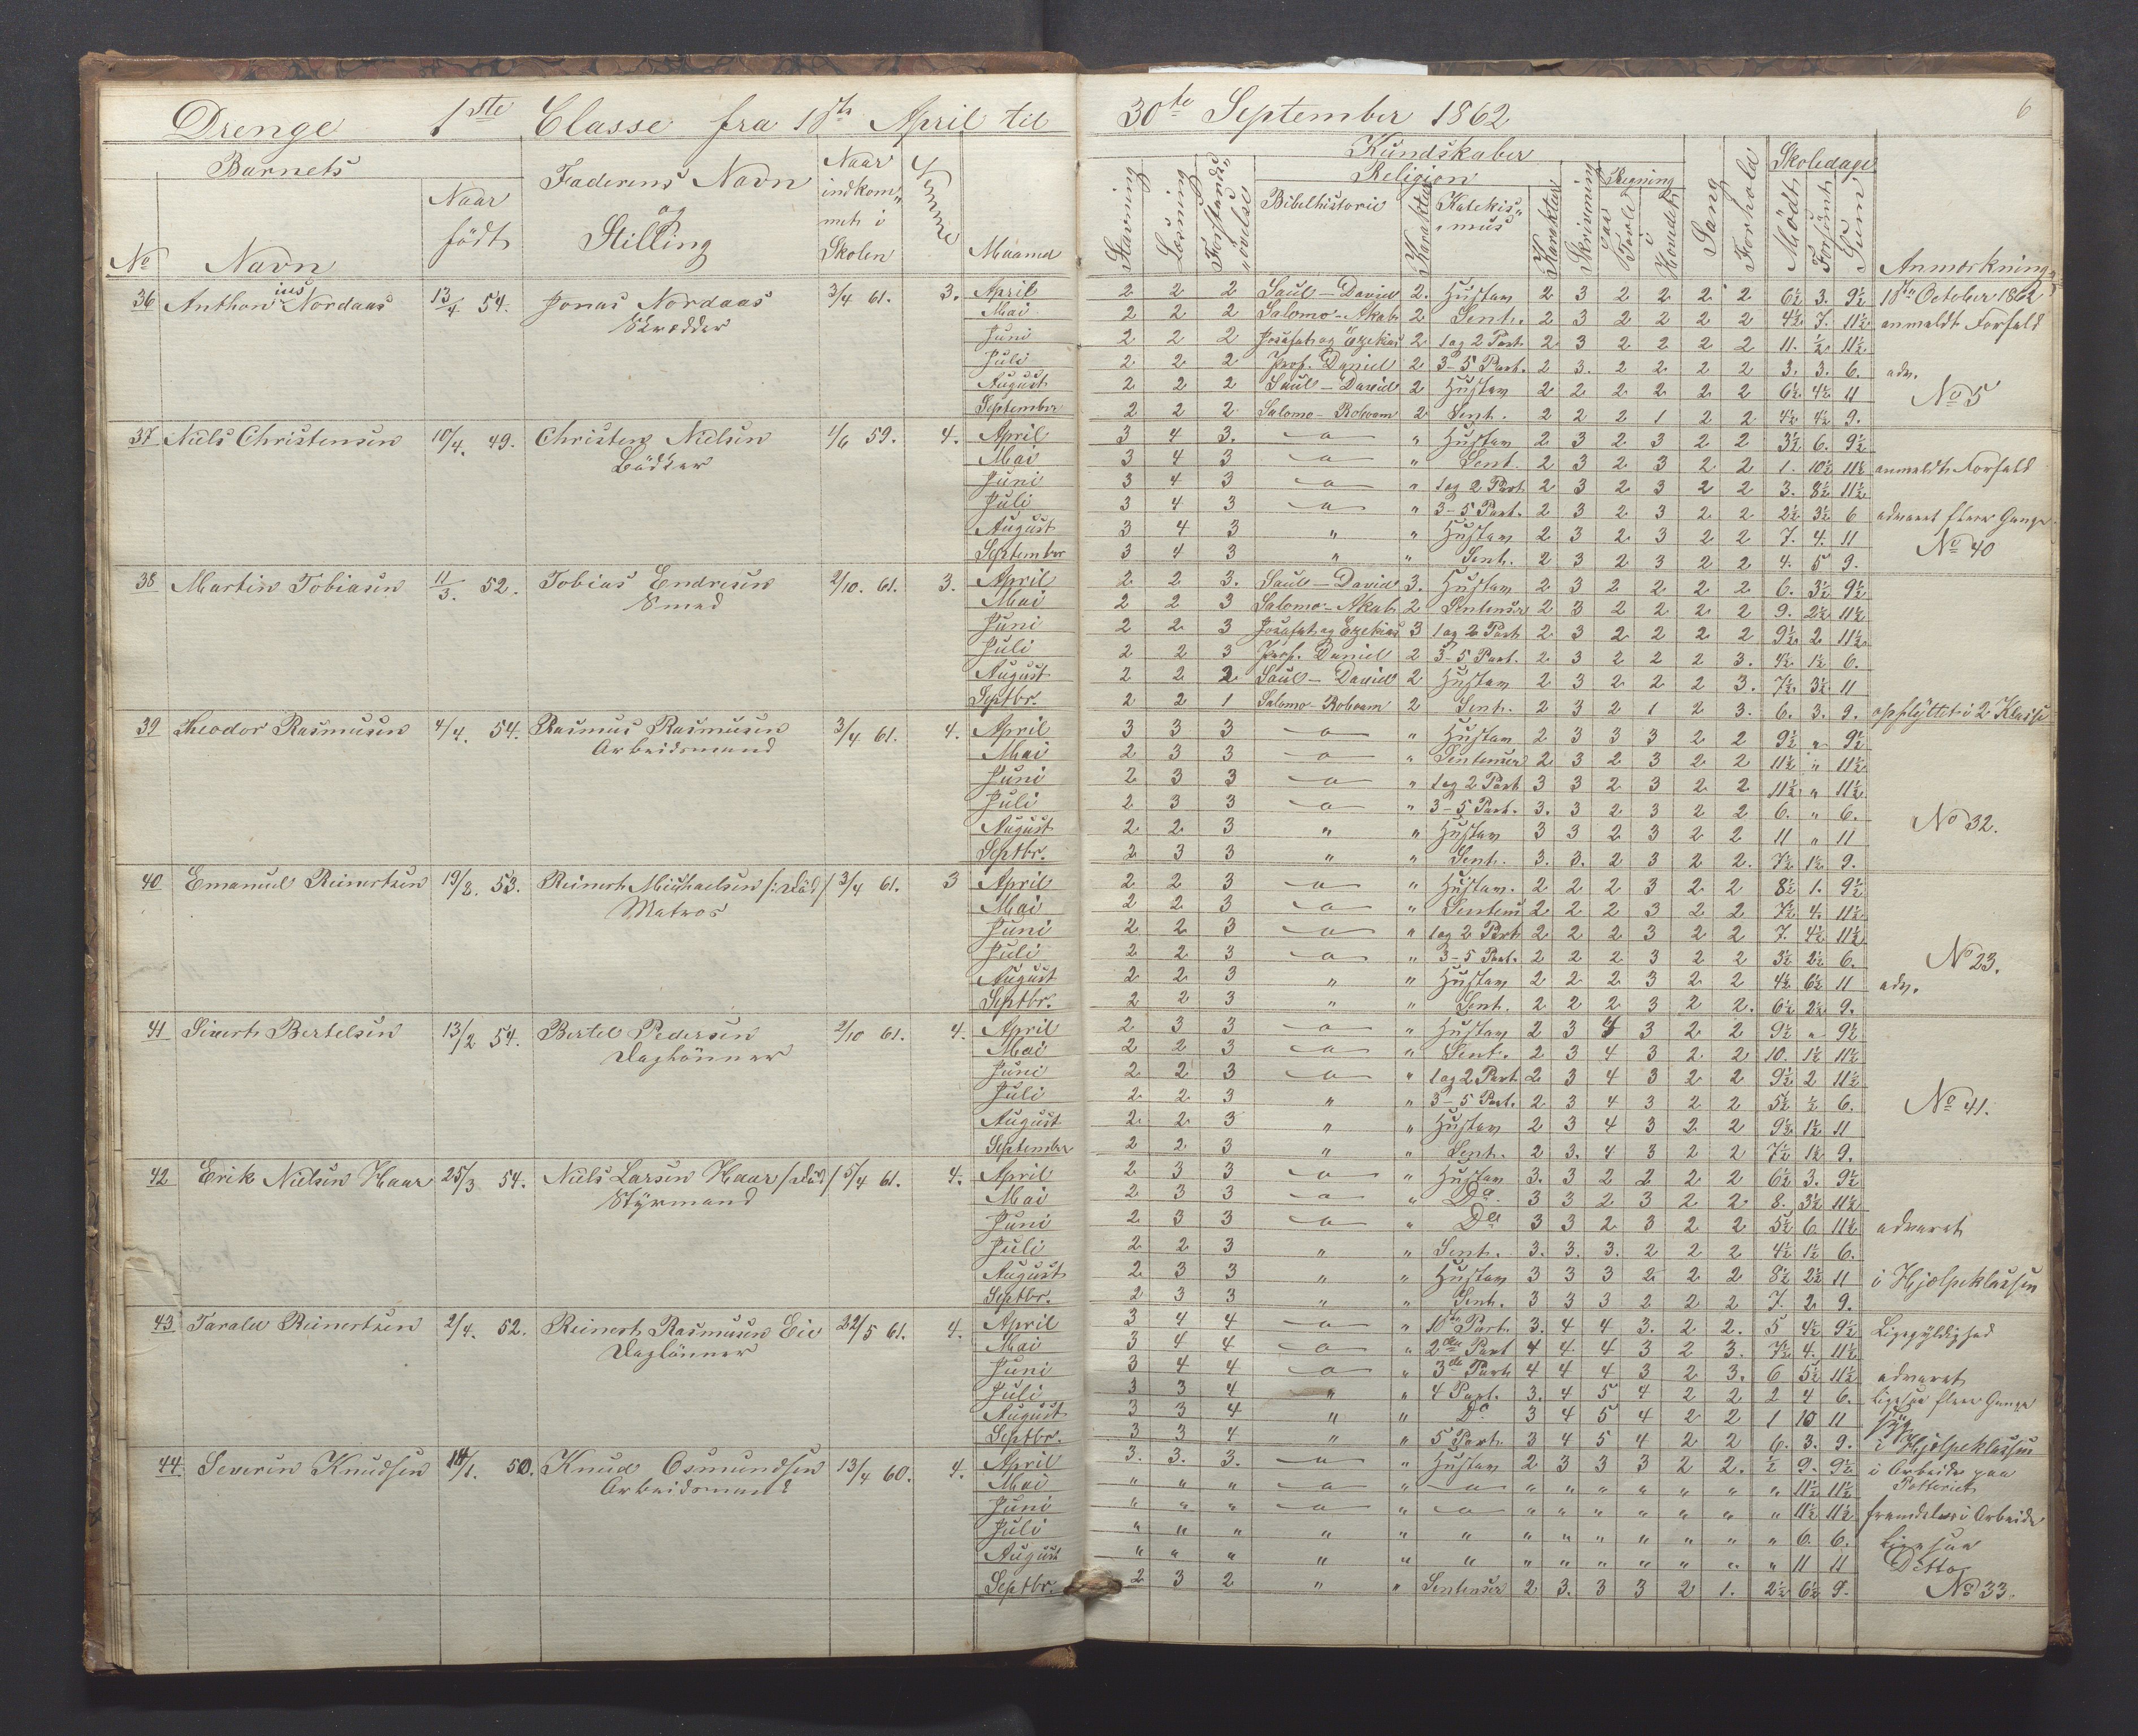 Drenge 1ste Classe fra 1ste April til 30te September 1862
6
Barnets
No Navn
Naar födt
Faderens Navn og Stilling
Naar indkommet i Skolen
Evne
Maaned
Kundskaber
Stavning
Læsning
Forstands övelse
Religion
Bibelhistorie
Karakter
Katekismus
Karakter
Skrivning
Regning
paa Tavle
i Hovedet
Sang
Forhold
Skoledage
Mödt
Forsömt
Sum
Anmærkning
36 Anthonius Nordaas 13/4 54. Jonas Nordaas 3/4 61. 3.
Skrædder
April 2 2 2 Saul - David 2. Hustav 2 3 2 2 2 2 6½ 3. 9½ 1ste October 1862
Mai 2 2 2 Salomo - Akab 2 Sent. 2 3 2 2 2 2 4½ 7. 11½ anmeldt Forfald
Juni 2 2 2 Josafat og Ezekias 2 1 og 2 Part 2 3 2 2 2 2 11. ½ 11½
Juli 2 2 2 Prof. Daniel 2 3-5 Part. 2 3. 2 2 2 2 3. 3. 6. adv.
August 2 2 2 Saul - David 2 Hustav 2 2 2 2 2 2 6½ 4½ 11 No 5
September 2 2 2 Salomo - Roboam 2 Sent. 2 2 2 1 2 2 4½ 4½ 9.
37 Niels Christensen 10/4. 49. Christen Nielsen 1/6 59. 4.
Bödker
April 3 4 3. o " Hustav 2 3 2 3 2 2 3½ 6. 9½
Mai 3 4 3 o " Sent. 2 3 2 3 2 2 1. 10½ 11½ anmeldt Forfald
Juni 3 4 3 o " 1 og 2 Part. 2 3 2 3 2 2 3. 8½ 11½
Juli 3 4 3 o " 3-5 Part. 2 3 2 3 2 2 2½ 3½ 6 advaret flere Gange
August 3 4 3 " " Hustav 2 3 2 3 2 2 7. 4. 11 No 40
September 3 4 3 " " Sent. 2 3 2 3 2 2 4. 5 9.
38 Martin Tobiasen 11/3. 52. Tobias Endresen 2/10. 61. 3.
Smed
April 2 2 3. Saul - David 3. Hustav 2 3 2 2 2 2 6. 3½ 9½
Mai 2 2 3 Salomo - Akab 2 Sentenser 2 3 2 2 2 2 9. 2½ 11½
Juni 2 2 3 Josafat og Ezekias 3 1 og 2 Part 2 3 2 2 2 2 9½ 2 11½
Juli 2 2 3 Prof. Daniel 2 3-5 Part. 2 3 2 2 2 3. 4½ 1½ 6.
August 2 2 2 Saul - David 2 Hustav 2 3 2 2 2 3. 7½ 3½ 11
Septbr. 2 2 1 Salomo - Roboam 2 Sent. 2 3 2 1 2 3. 6. 3. 9. opflyttet i 2 Klasse
39 Theodor Rasmusen 4/4. 54. Rasmus Rasmusen 3/4 61. 4.
Arbeidsmand
April 3 3 3 o " Hustav 2 3 3 3 2 2 9½ " 9½
Mai 2 3 3 o " Sentenser 2 3 2 3 2 2 11½ " 11½
Juni 2 3 3 o " 1 og 2 Part 3 3 2 3 2 2 11½ " 11½
Juli 2 3 3 o " 3-5 Part. 3. 3 2 3 2 2 6. " 6.
August 2 2 3 " " Hustav 3 3 2 3 2 2 11 " 11 No 32.
Septbr. 2 3 3 " " Sent. 3. 3. 2 3 2 2. 7½ 1½ 9.
40 Emanuel Reinertsen 19/8. 53. Reinert Michaelsen /: Död / 3/4 61. 3
Matros
April 2 2 3 o " Hustav. 2 2 2 3 2 2 8½ 1. 9½
Mai 2 2 3 o " Sentens 2 2 2 3 2 2 7½ 4. 11½
Juni 2 2 3 o " 1 og 2 Part 2 2 2 3 2 2 7. 4½ 11½
Juli 2 2 3 o " 3-5 Part. 2 2 2 3 2 2 3½ 2½ 6. No 23.
August 2 2 3 " " Hustav 2 2 2 3 2 2 4½ 6½ 11 adv.
Septbr. 2 2 3 " " Sent. 2 2 2 3 2 2. 6½ 2½ 9.
41 Sivert Bertelsen 13/2 54. Bertel Pedersen 2/10 61. 4.
Daglönner
April 2 3 3 o " Hustav 2 3 4 3 2 2 9½ " 9½
Mai 2 2 3 o " Sent. 2 3 4 3 2 2 10. 1½ 11½
Juni 2 2 3 o " 1 og 2 Part 2 3 4 3 2 2 9½ 2 11½
Juli 2 2 3 " " 3-5 Part. 2 3 4 3 2 2 5½ ½ 6. No 41.
August 2 2 3 " " Hustav 2 3 4 3 2 2 9½ 1½ 11
September 2 2 3 " " Sent. 2 3. 4 3 2 2 7½ 1½ 9.
42 Erik Nielsen Haar 25/3 54. Niels Larsen Haar / Död / 5/4 61. 4.
Styrmand
April 2 3 3 o " Hustav 3. 3 2 2 2 2 6½ 3. 9½
Mai 2 3 3 o " Do. 3 3 2 3 2 2 8. 3½ 11½
Juni 2 3 3 o " Do 3 3 2 3 2 2 5½ 6 11½ advaret
Juli 2 2 3 " " Sent. 3. 3. 3. 2 2 2 4½ 1½ 6.
August 2 3 3 " " Hustav 3 3 3 2 2 2 8½ 2½ 11 i Hjælpeklassen
Septbr. 2 3 3 " " Sent. 3 3 3 2 2 2 7. 2 9.
43 Tarald Reinertsen 2/4. 52. Reinert Rasmusen Eie 22/5 61. 4.
Daglönner
April 3 4 4 o " 1ste Part. 3. 4 4 3. 2 2. 5 4½ 9½ Ligegyldighed
Mai 3 4 4 o " 2den Part 4 4 4 3 2 3. 7½ 4. 11½
Juni 3 4 4 o " 3de Part 4 4 4 3 2 3. 6 5½ 11½ advaret
Juli 3 3 4 " " 4 Part. 3. 4 5 4 2 2 2 4 6. Ligesaa flere Gange
August 3 3 4 " " Do 3 4 5 4 2 2 1 10 11 syg
Septbr. 3 3 4 " " 5 Part. 3 4 5 4 2 2 6. 3. 9. i Hjelpeklassen
44. Severin Knudsen 14/1. 50. Knud Osmundsen 13/4 60. 4.
Arbeidsmand
April 3. 3. 3. o " Hustav 2 3 3 3 2 2. ½ 9. 9½ i Arbeide paa
Mai " " " o " o " " " " " " " 11½ 11½ Potteriet
Juni " " " o " o " " " " " " " 11½ 11½ fremdeles i Arbeide
Juli " " " " " " " " " " " " " 6. 6. Ligesaa
August " " " " " " " " " " " " " 11 11 Ditto
Septbr. 2 3 2 " " Sentenser 2 3. 3 3 2 1. 2½ 6½ 9. No 33.